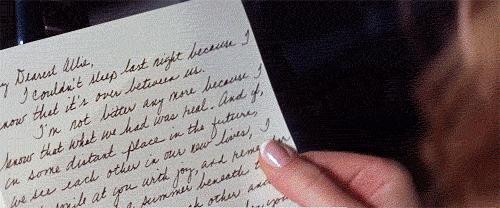 y Dearest Allie,
I couldn't sleep last night because I
now that it's over between us.
I'm not bitter any more because I
know that what we had was real. And if,
in some distant place in the future,
we see each other in our new lives, I
smile at you with joy, and remem
a summer beneath
each other and
you